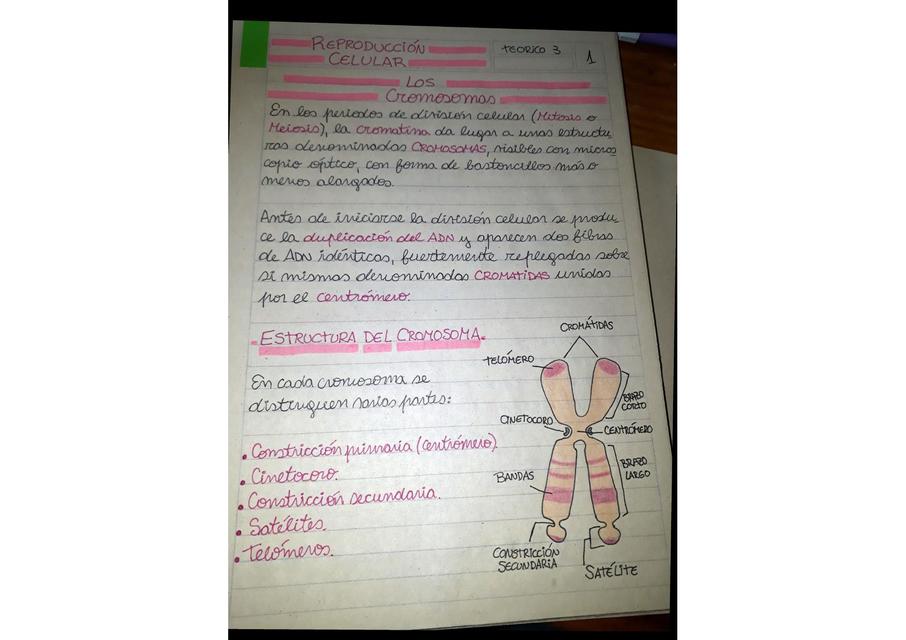 REPRODUCCIÓN
CELULAR
TEORICO 3
1
LOS
Cromosomas
En los periodos de división celular (Mitosis o
Meiosis), la cromatina da lugar a unas estructu
ras denominadas CROMOSOMAS, visibles con micros
copio óptico, con forma de bastoncillos más o
menos alargados.
Antes de iniciarse la división celular se produ
ce la duplicación del ADN y aparecen dos fibras
de ADN idénticas, fuertemente replegadas sobre
si mismas denominadas CROMATIDAS unidas
por el centrómero.
- ESTRUCTURA DEL CROMOSOMA.
En cada cromosoma se
distinguen varias partes:
• Constricción primaria (centrómero)
• Cinetocoro.
• Constricción secundaria.
• Satélites.
• Telómeros.
CROMÁTIDAS
TELÓMERO
BRAZO
CORTO
CINETOCORO
CENTRÓMERO
BANDAS
BRAZO
LARGO
CONSTRICCIÓN
SECUNDARIA
SATÉLITE